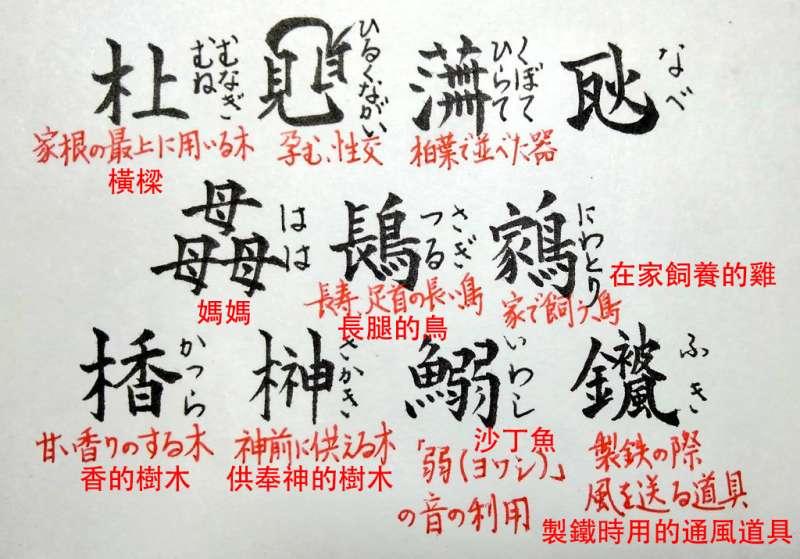 むなぎ
むね
家根の最上に用いる木
橫樑
ひるくながい
孕む、性交
くぼて
ひらて
柏葉で並べた器
なべ
はは
媽媽
さぎ
つる
長寿、足首の長い鳥
長腿的鳥
にわとり
家で飼う鳥
在家飼養的雞
かつら
甘い香りのする木
香的樹木
榊
さかき
神前に供える木
供奉神的樹木
鰯
いわし
沙丁魚
「弱(ヨワシ)」
の音の利用
ふき
製鉄の際
風を送る道具
製鐵時用的通風道具